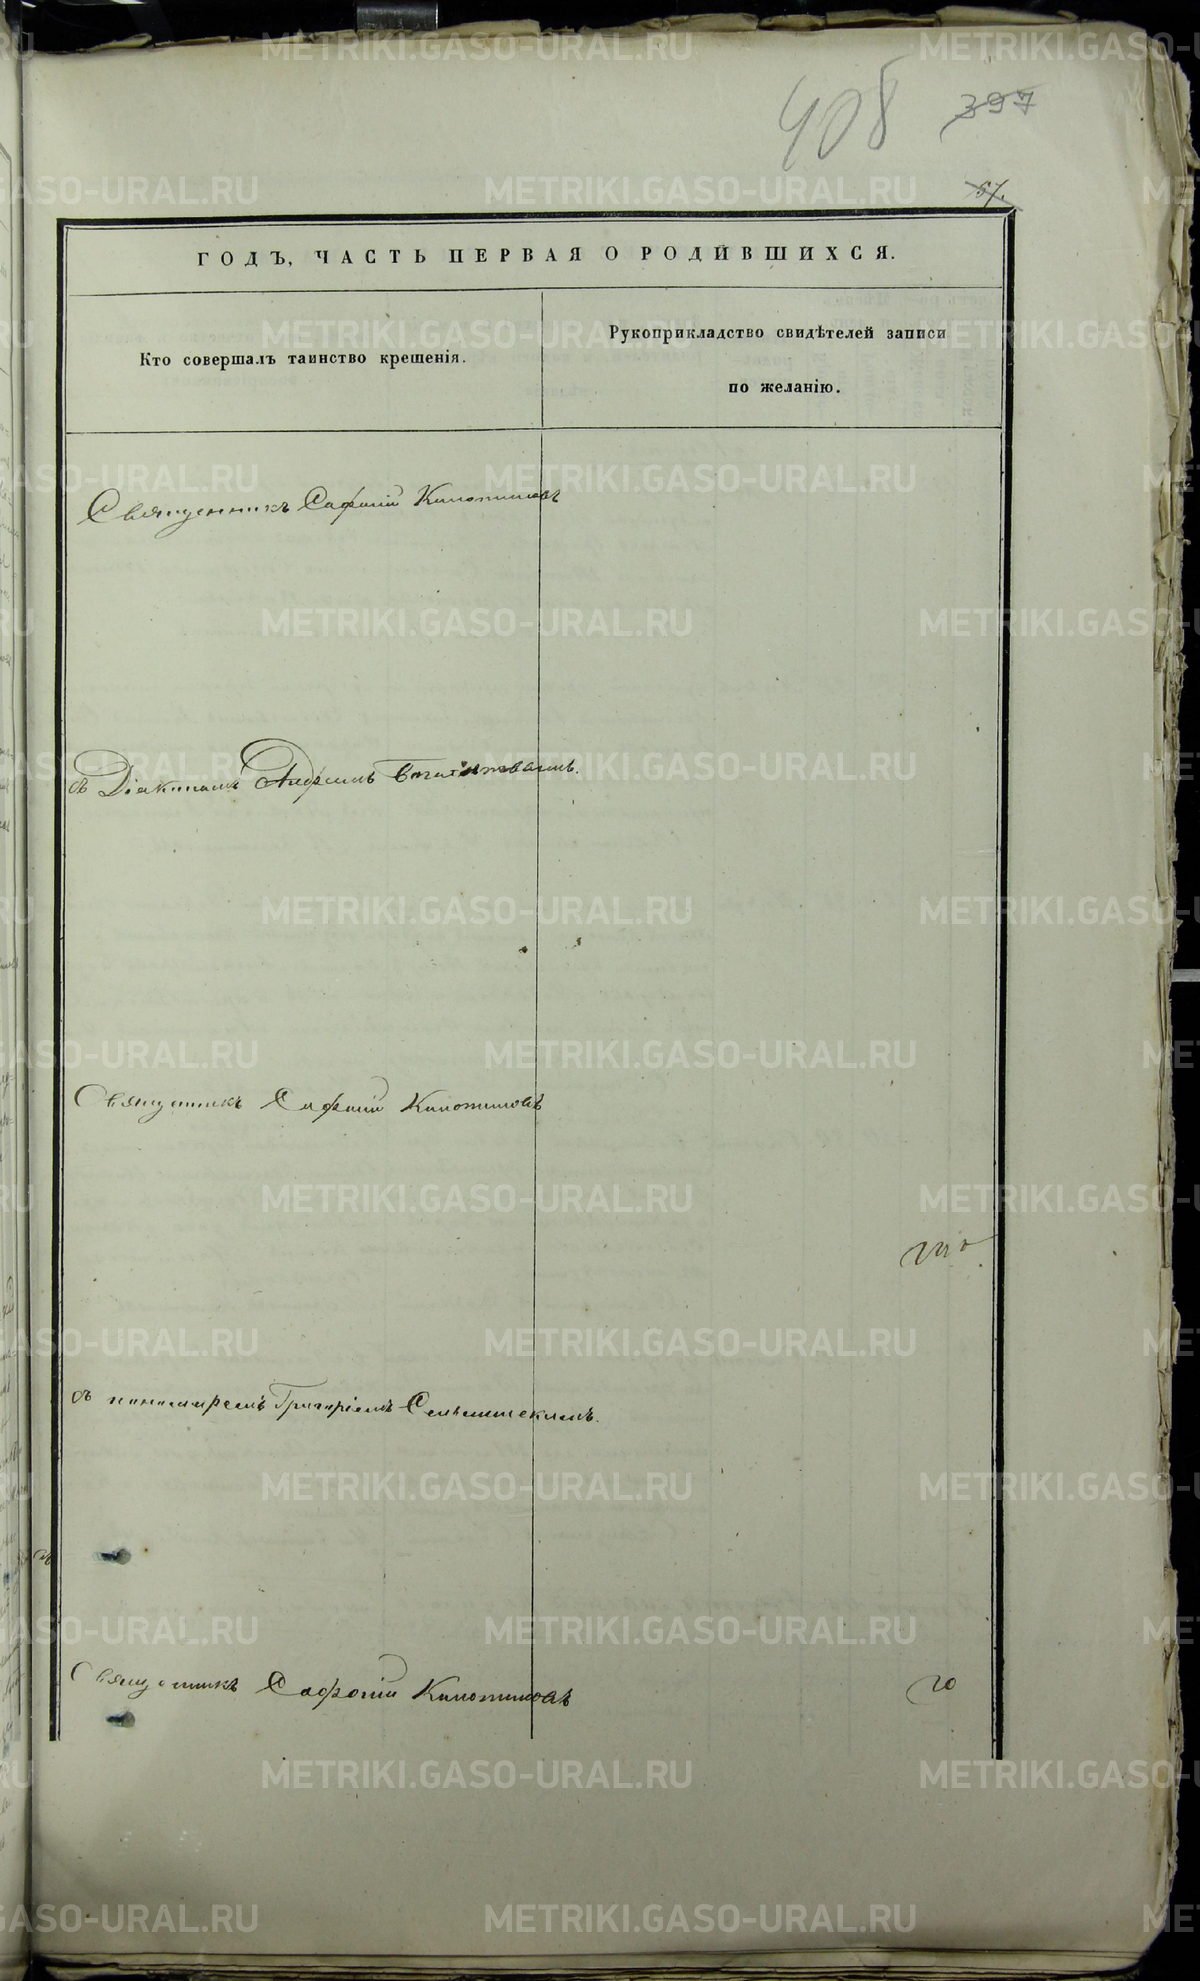 408 397
67.
ГОДЪ, ЧАСТЬ ПЕРВАЯ О РОДИВШИХСЯ.
Кто совершалъ таинство крещенія.
Рукоприкладство свидѣтелей записи
по желанію.
Священникъ Сафоній
съ Діакономъ Андреемъ
Священникъ Сафоній
съ пономаремъ Григоріемъ
Священникъ Сафоній
METRIKI.GASO-URAL.RU